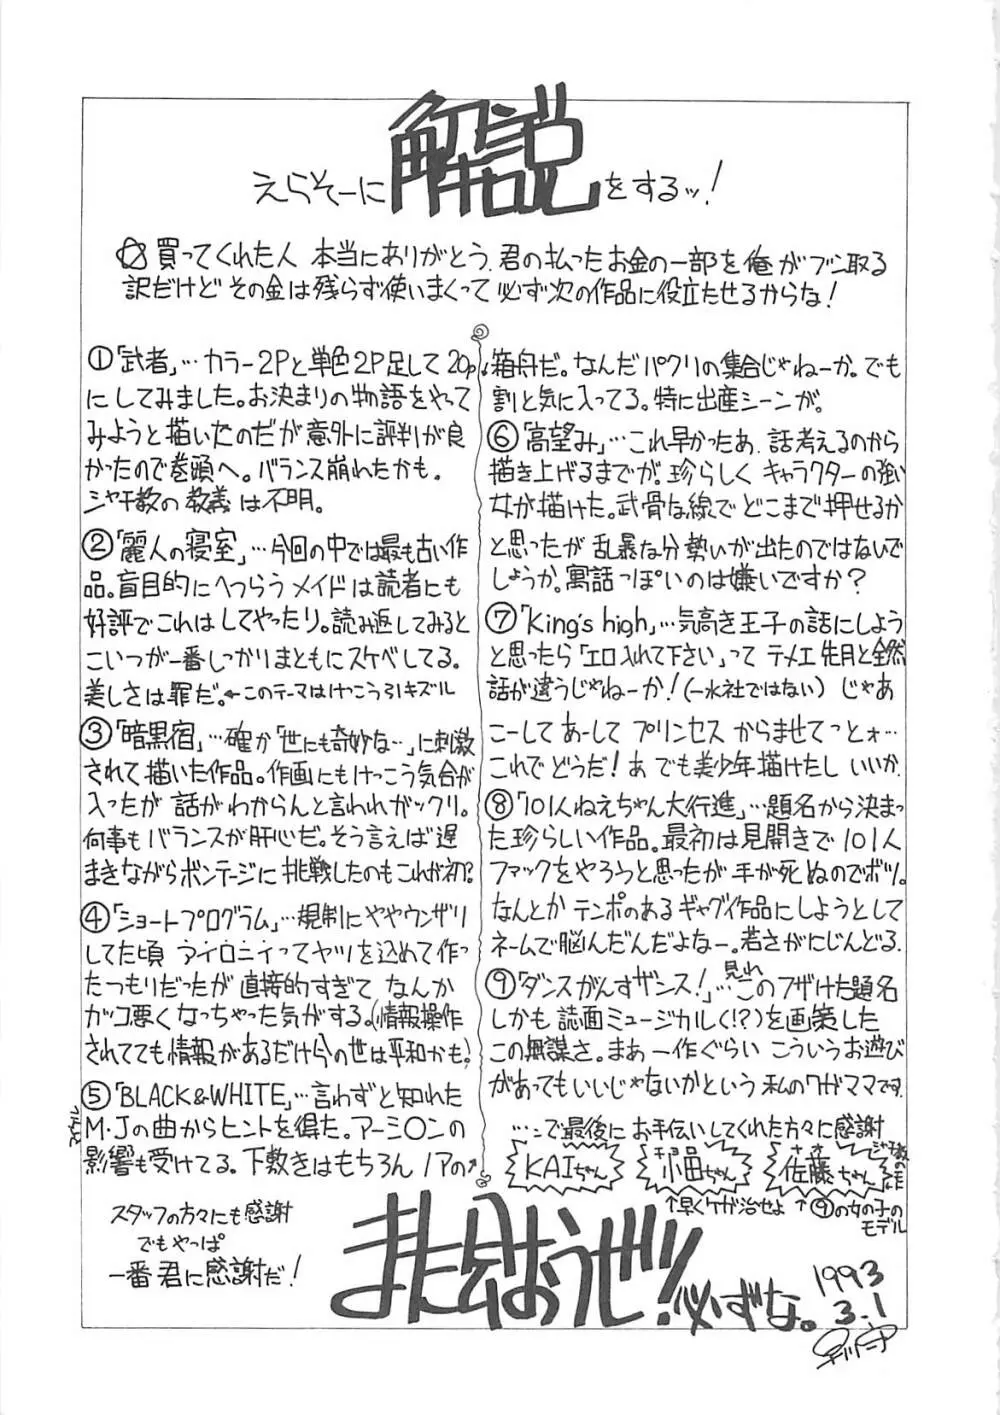 えらそーに解説をするッ!
☆買ってくれた人 本当にありがとう.君の払ったお金の一部を俺がブン取る
訳だけど その金は残らず使いまくって 必ず次の作品に役立たせるからな!
①「武者」…カラー2Pと単色2P足して20p
にしてみました。お決まりの物語をやって
みようと描いたのだが意外に評判が良
かったので巻頭へ。バランス崩れたかも。
シャチ教の教義は不明。
②「麗人の寝室」…今回の中では最も古い作
品。盲目的にへつらうメイドは読者にも
好評でこれはしてやったり。読み返してみると
こいつが一番しっかりまともにスケベしてる。
美しさは罪だ。←このテーマはけっこう引キズル
③「暗黒宿」…確か「世にも奇妙な…」に刺激
されて描いた作品。作画にもけっこう気合が
入ったが 話がわからんと言われガックリ。
何事もバランスが肝心だ。そう言えば遅
まきながらボンテージに挑戦したのもこれが初?
④「ショートプログラム」…規制にややウンザリ
してた頃 アイロニイってヤツを込めて作っ
たつもりだったが 直接的すぎて なんか
カッコ悪くなっちゃった気がする。(情報操作
されてても情報があるだけ今の世は平和かも)
⑤「BLACK&WHITE」…言わずと知れた
M・Jの曲からヒントを得た。アーミ〇ンの
影響も受けてる。下敷きはもちろん ノアの
箱舟だ。なんだパクリの集合じゃねーか。でも
割と気に入ってる。特に出産シーンが。
⑥「高望み」…これ早かったあ.話考えるのから
描き上げるまでが.珍らしく キャラクターの強い
女が描けた。武骨な線で どこまで押せるか
と思ったが 乱暴な分 勢いが出たのではないで
しょうか。寓話っぽいのは嫌いですか?
⑦「King's high」…気高き王子の話にしよう
と思ったら「エロ入れて下さい」って テメエ先月と全然
話が違うじゃねーか!(一水社ではない) じゃあ
こーして あーして プリンセス からませてっとォ…
これで どうだ!あ でも美少年描けたし いいか.
⑧「101人ねえちゃん大行進」…題名から決まっ
た珍らしい作品。最初は見開きで101人
ファックをやろうと思ったが 手が死ぬのでボツ。
なんとか テンポのあるギャグ作品にしようとして
ネームで脳んだんだよなー。若さがにじんどる.
⑨「ダンスがんすザンス!」…見れこのフザけた題名
しかも 誌面ミュージカル(!?)を画策した
この無謀さ。まあ 一作ぐらい こういうお遊び
があってもいいじゃないかという 私のワガママです.
…で最後に お手伝いしてくれた方々に感謝
KAIちゃん
ちゃん
佐藤ちゃん
↑早くケガ治せよ
↑⑨の女の子の
モデル
スタッフの方々にも感謝
でもやっぱ
一番君に感謝だ!
また会おうぜ!!必ずな。
1993
3.1